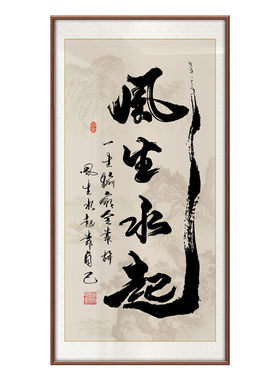 風生水起
一生輸贏全靠拼
風生水起靠自己